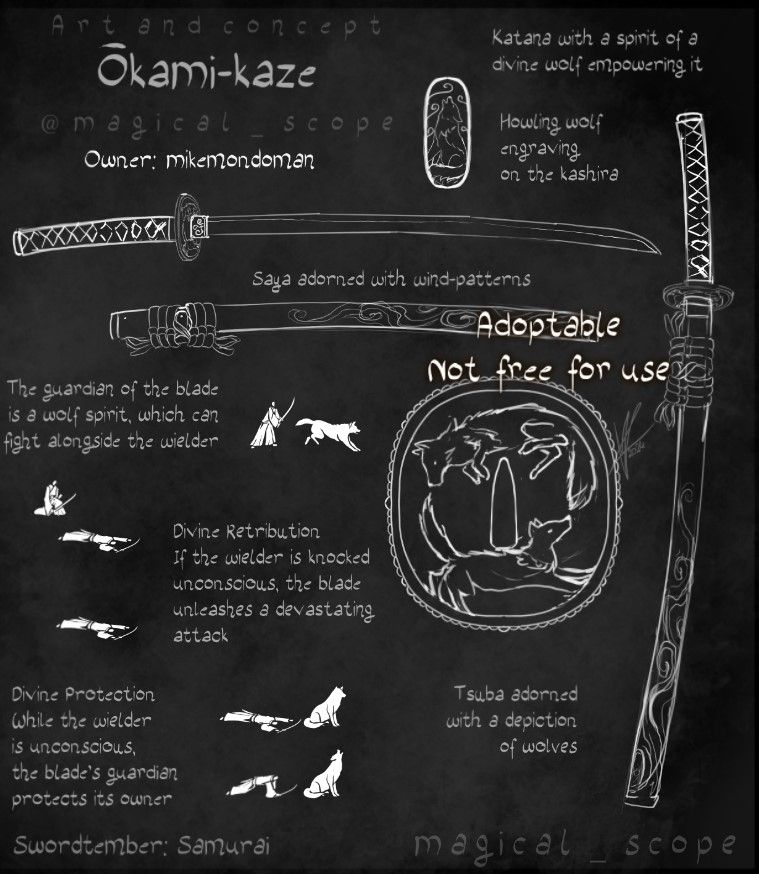 Art and concept
Ōkami-kaze
@magical_scope
Owner: mikemondoman
Katana with a spirit of a
divine wolf empowering it
Howling wolf
engraving
on the kashira
Saya adorned with wind-patterns
Adoptable
Not free for use
The guardian of the blade
is a wolf spirit, which can
fight alongside the wielder
Divine Retribution
If the wielder is knocked
unconscious, the blade
unleashes a devastating
attack
Divine Protection
While the wielder
is unconscious,
the blade's guardian
protects its owner
Tsuba adorned
with a depiction
of wolves
Swordtember: Samurai
magical_scope